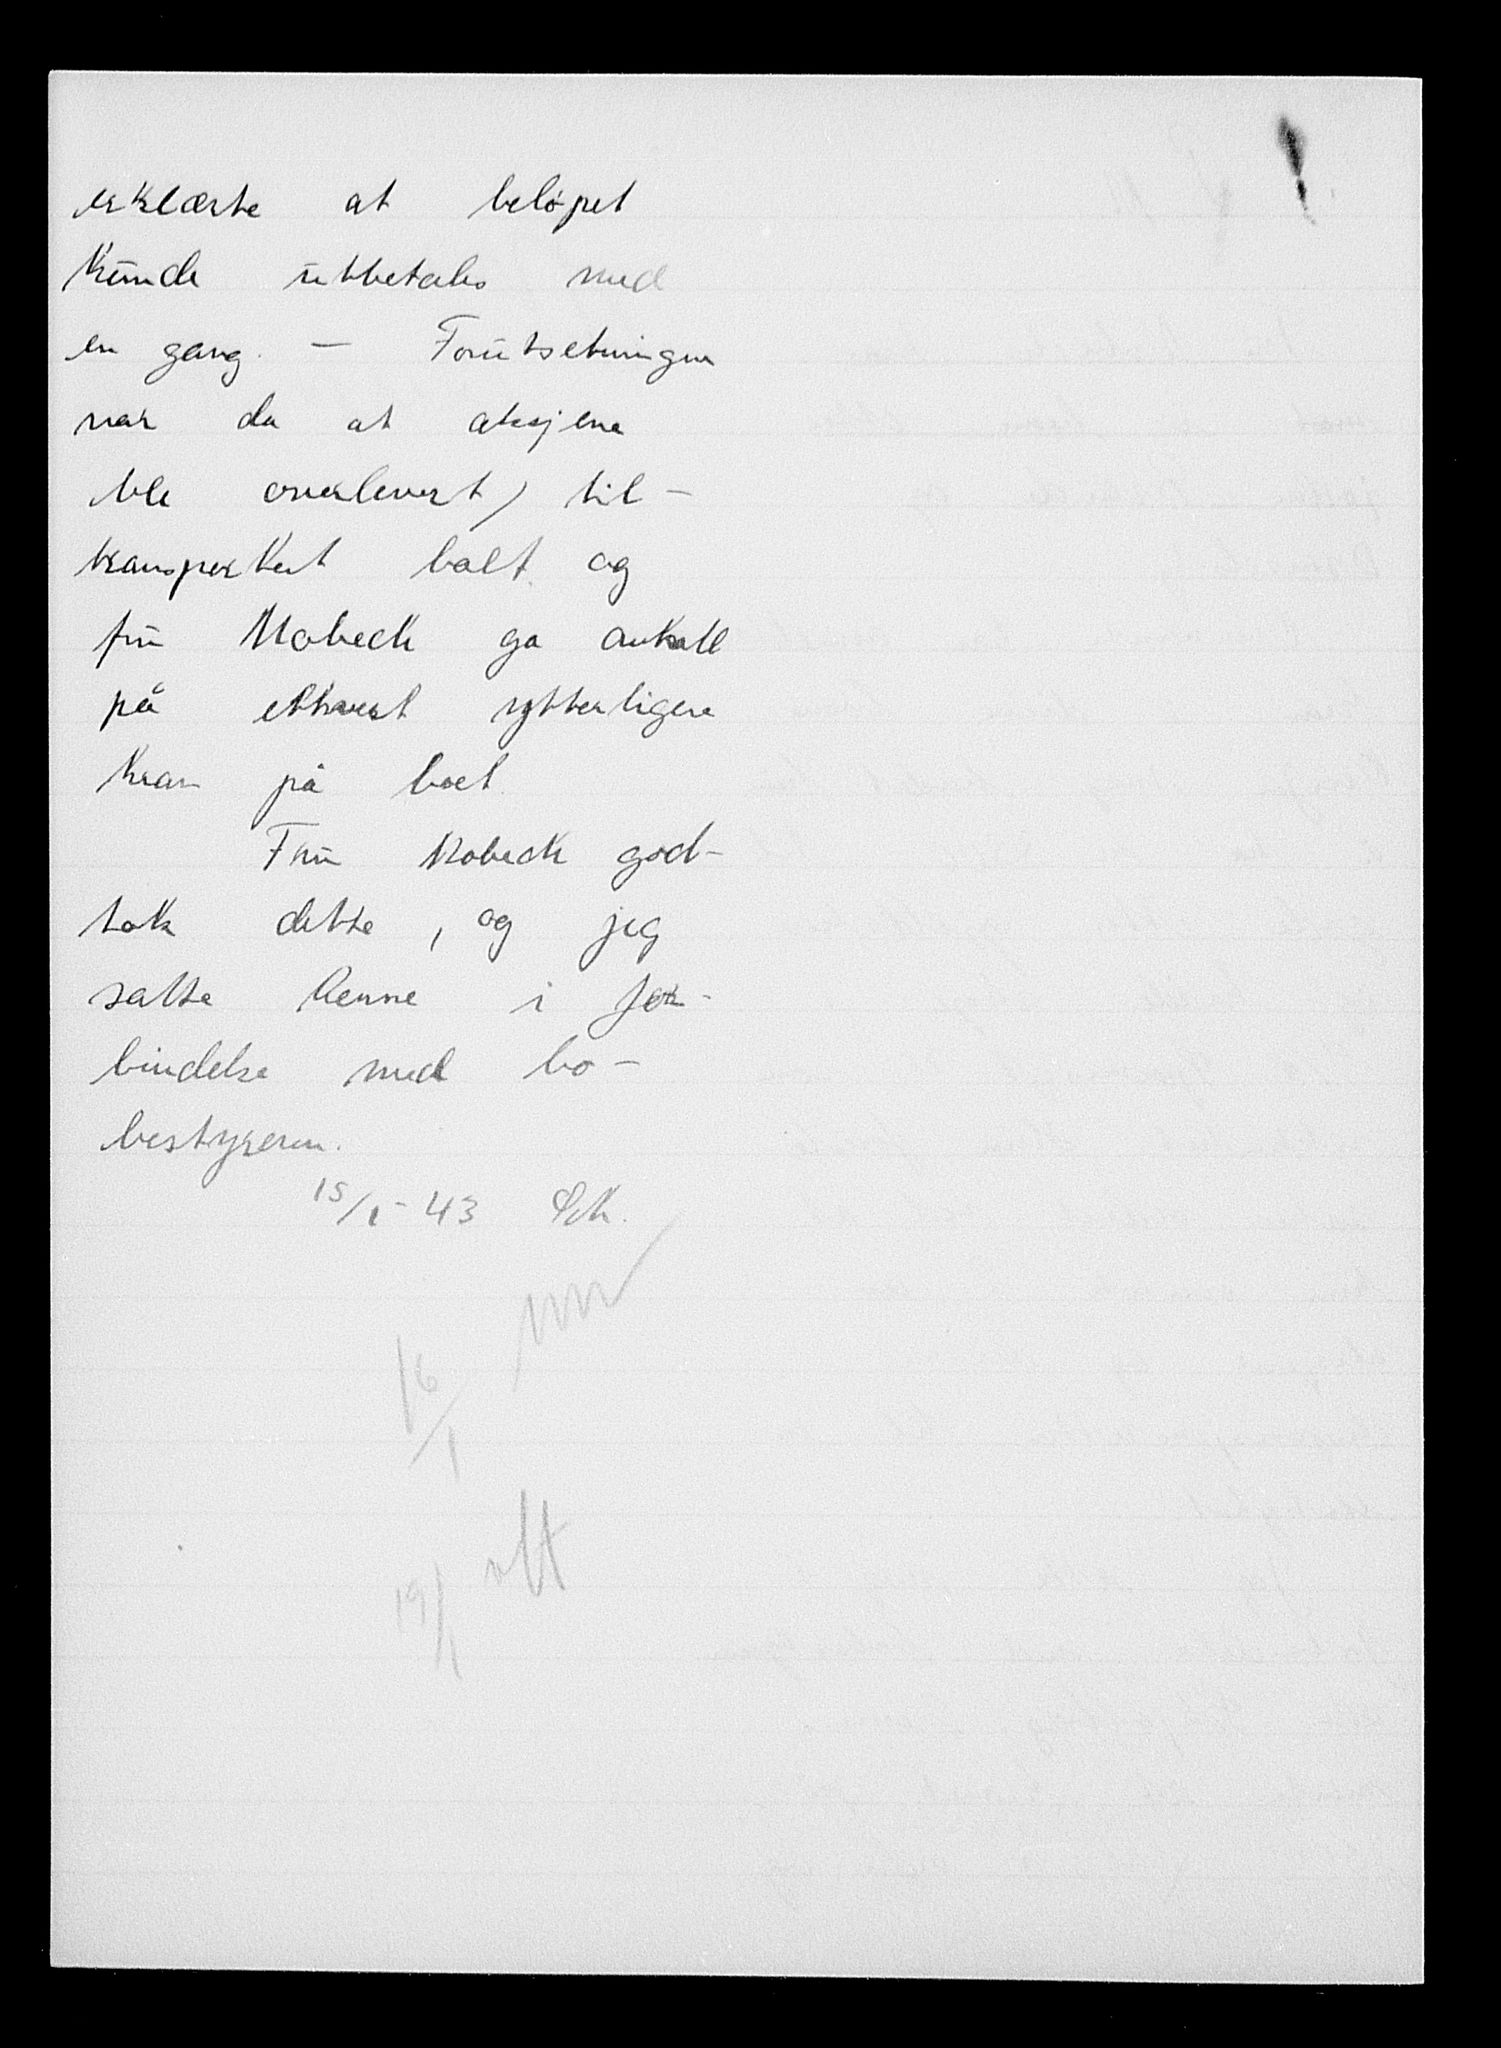 erklærte at beløpet
kunde utbetales med
en gang. — Forutsetningen
var da at aksjene
ble overlevert, til-
transportert boet og
fru Mobeck ga avkall
på ethvert ytterligere
krav på boet.
Fru Mobeck god-
tok dette, og jeg
satte henne i for-
bindelse med bo-
bestyreren.
15/1-43 Sch.
16/1
19/1